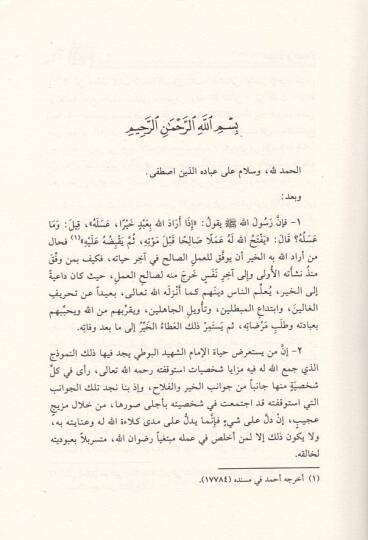 بِسْمِ اللَّهِ الرَّحْمَٰنِ الرَّحِيمِ
الحمد لله، وسلام على عباده الذين اصطفى.
وبعد:
١- فإنَّ رَسُولَ الله ﷺ يقولُ: «إِذَا أَرَادَ اللهُ بِعَبْدٍ خَيْرًا، عَسَلَهُ»، قِيلَ: وَمَا
عَسَلُهُ؟ قَالَ: «يَفْتَحُ اللهُ لَهُ عَمَلًا صَالِحًا قَبْلَ مَوْتِهِ، ثُمَّ يَقْبِضُهُ عَلَيْهِ»(١) فحال
من أراد الله به الخير أن يوفَّق للعملِ الصالح في آخر حياته، فكيف بمن وفَّقَ
منذُ نشأته الأُولى وإلى آخرِ نَفَسٍ خَرجَ منه لصالحِ العملِ، حيث كان داعيةً
إلى الخير، يُعلِّم الناس دينَهم كما أنْزلَه الله تعالى، بعيداً عن تحريفِ
الغالينَ، وابتداعِ المبطلين، وتأويلِ الجاهلين، ويقرّبهم من الله ويحبّبهم
بعبادته وطلَبِ مَرْضاتِه، ثم يَستَمِرُ ذلك العَطاءُ الخَيِّرُ إلى ما بعد وفاتِه.
٢- إنَّ من يستعرض حياة الإمام الشهيد البوطي يجد فيها ذلك النموذج
الذي جمع الله له فيه مزايا شخصيات استوقفته رحمه الله تعالى، رأى في كلِّ
شخصيّةٍ منها جانباً من جوانب الخير والفلاح، وإذ بنا نجد تلك الجوانب
التي استوقفته قد اجتمعت في شخصيته بأجلى صورها، من خلال مزيجٍ
عجيبٍ، إنْ دَلَّ على شيءٍ فإنَّما يدلُّ على مدى كلاءة الله له وعنايته به،
ولا يكون ذلك إلا لمن أخلص في عمله مبتغياً رضوان الله، متسربلاً بعبوديته
لخالقه.
(١) أخرجه أحمد في مسنده (١٧٧٨٤).